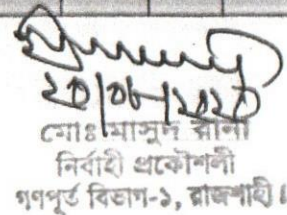 ২০/০৮/২০২০
মোঃ মাসুদ রানা
নির্বাহী প্রকৌশলী
গণপূর্ত বিভাগ-১, রাজশাহী।